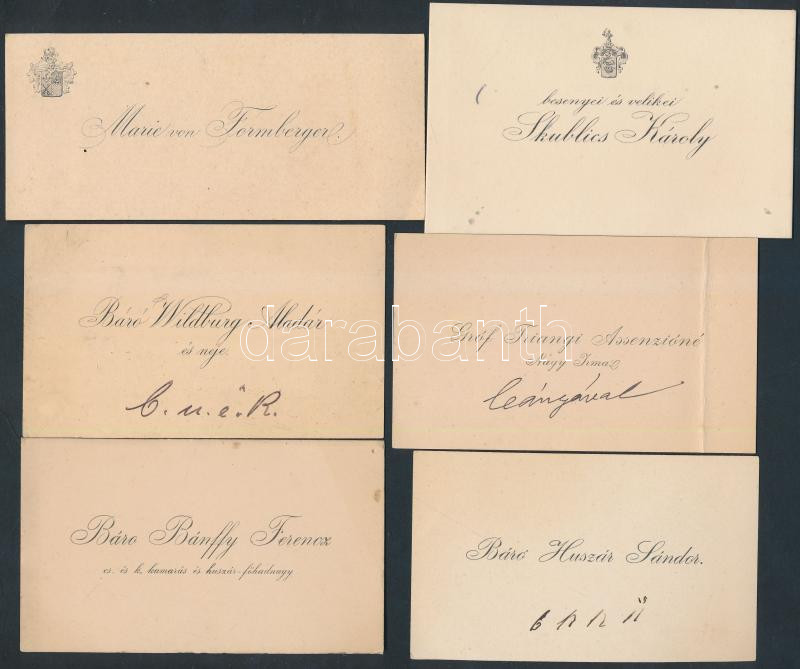 Marie von Formberger.
besenyei és velikei
Skublics Károly
Báró Wildburg Aladár
és neje.
Gróf Triangi Assenzióné
Nagy Irma
leányával
Báro Bánffy Ferencz
cs. és k. kamarás és huszár-főhadnagy
Báró Huszár Sándor.
darabanth